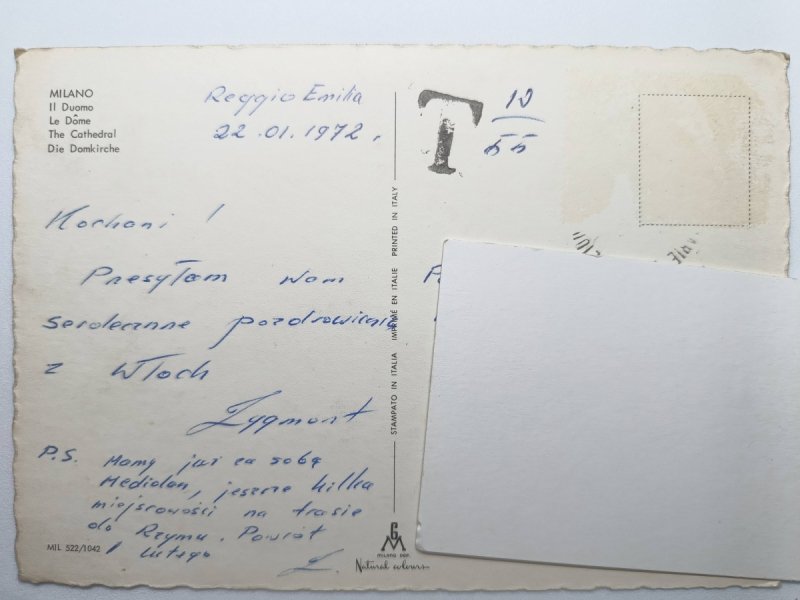 MILANO
Il Duomo
Le Dôme
The Cathedral
Die Domkirche
Reggio Emilia
22.01.1972.
T
10
55
Kochani!
Presyłam Wam
serdeczne pozdrowienia
z Włoch
Zygmont
P.S. Mamy już za sobą
Mediolan, jeszcze kilka
miejscowości na trasie
do Rzymu. Powrót
1 Lutego
Z.
MIL 522/1042
STAMPATO IN ITALIA IMPRIMÉ EN ITALIE PRINTED IN ITALY
GM
MILANO DEP.
Natural colours